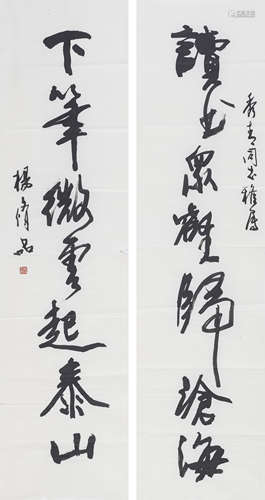 秀青同志雅屬
讀書眾壑歸滄海
下筆微雲起泰山
楊